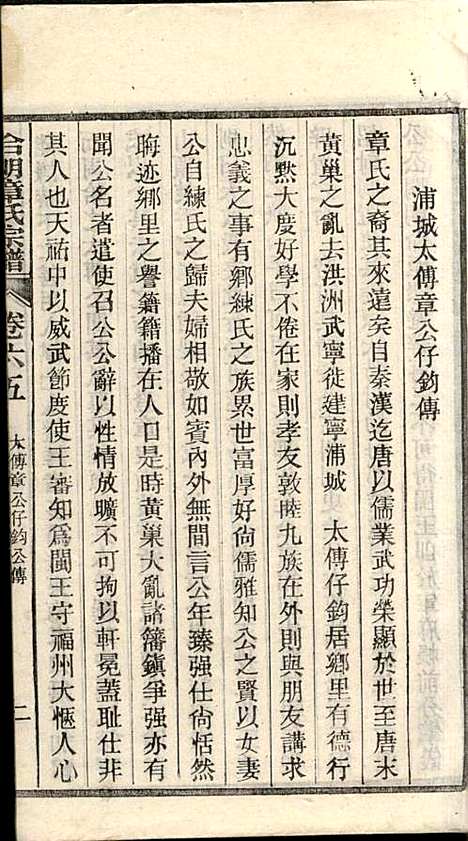 浦城太傅章公仔鈞傳
章氏之裔其來遠矣自秦漢迄唐以儒業武功榮顯於世至唐末
黃巢之亂去洪洲武寧徙建寧浦城 太傅仔鈞居鄉里有德行
沉默大度好學不倦在家則孝友敦睦九族在外則與朋友講求
忠義之事有鄉練氏之族累世富厚好尙儒雅知公之賢以女妻
公自練氏之歸夫婦相敬如賓內外無間言公年臻强仕尙恬然
晦迹鄉里之譽籍籍播在人口是時黃巢大亂諸籓鎮爭强亦有
聞公名者遣使召公公辭以性情放曠不可拘以軒冕蓋耻仕非
其人也天祐中以威武節度使王審知爲閩王守福州大愜人心
章氏宗譜
卷之六五
太傅章公仔鈞公傳
二